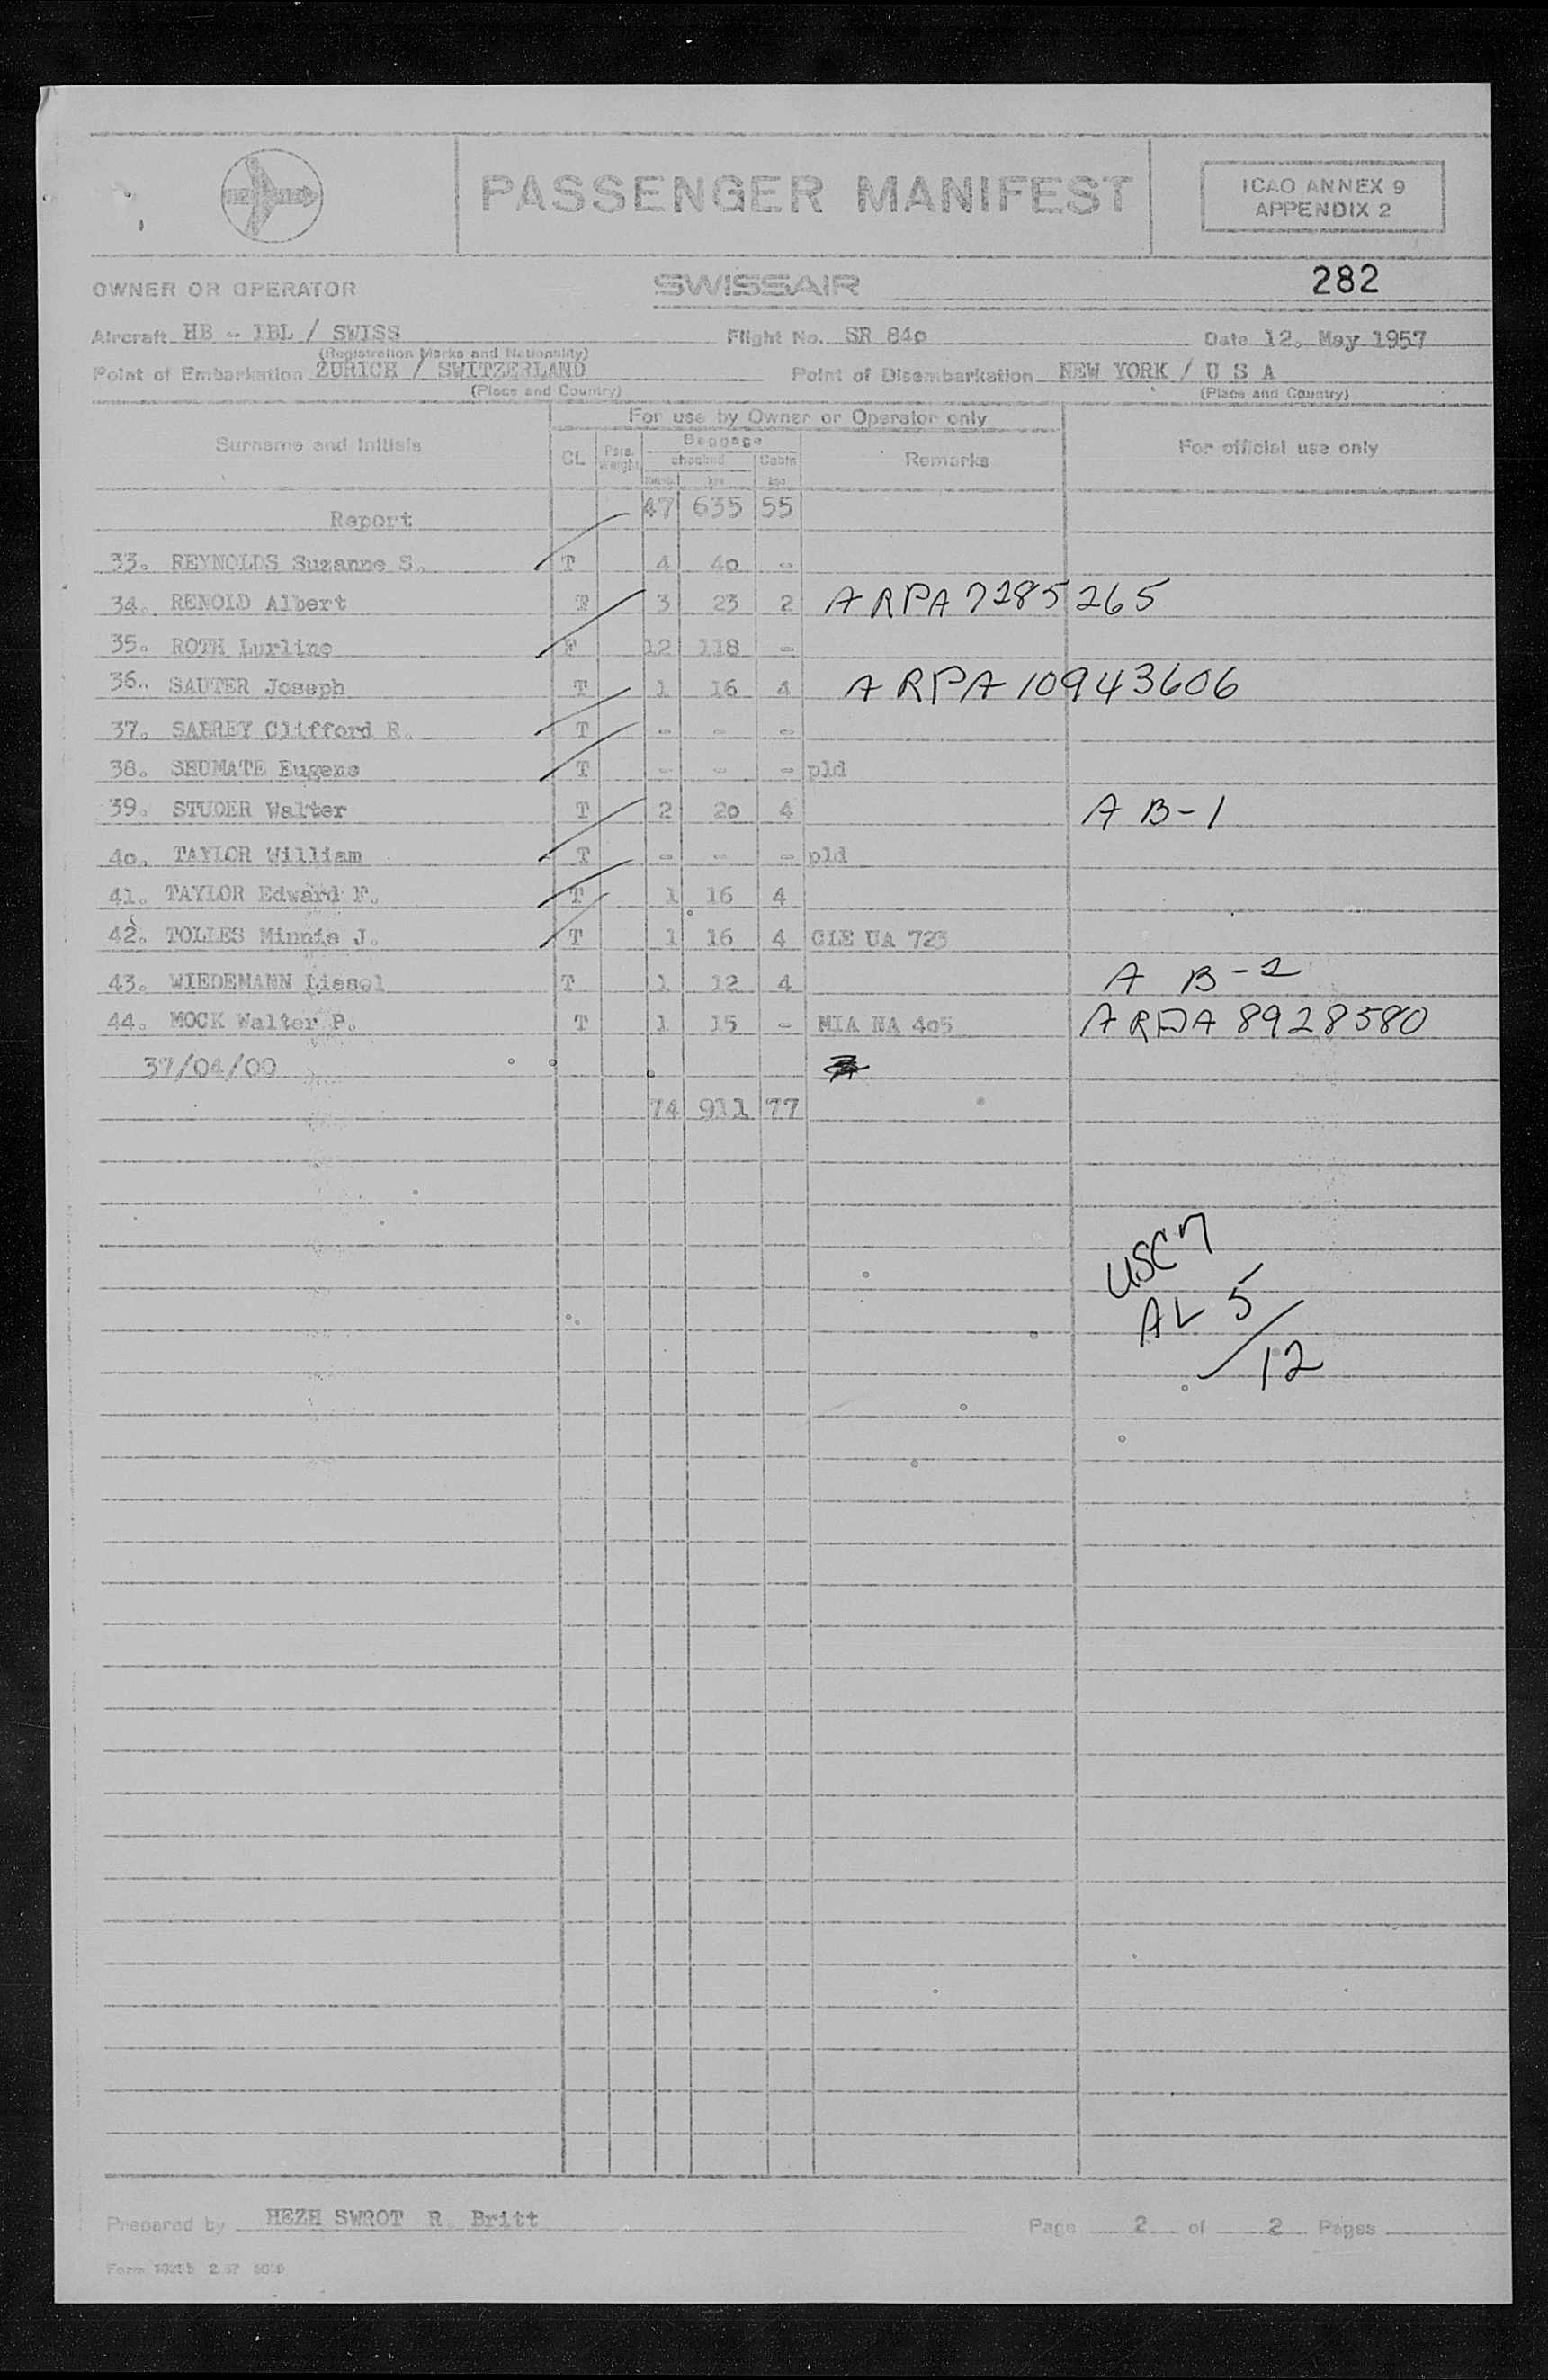 PASSENGER MANIFEST
ICAO ANNEX 9
APPENDIX 2
OWNER OR OPERATOR SWISSAIR 282
Aircraft HB - IBL / SWISS Flight No. SR 840 Date 12. May 1957
(Registration Marks and Nationality)
Point of Embarkation ZURICH / SWITZERLAND Point of Disembarkation NEW YORK / U S A
(Place and Country) (Place and Country)
For use by Owner or Operator only
Surname and Initials CL Pass. Weight Baggage checked Cabin Remarks For official use only
kgs kgs
Report 47 635 55
33. REYNOLDS Suzanne S. T 4 40 -
34. RENOLD Albert T 3 23 2 ARPA 7285265
35. ROTH Lurline F 12 118 -
36. SAUTER Joseph T 1 16 4 ARPA 10943606
37. SABREY Clifford R. T - - -
38. SHUMATE Eugene T - - - pld
39. STUDER Walter T 2 20 4 A B-1
40. TAYLOR William T - - - pld
41. TAYLOR Edward F. T 1 16 4
42. TOLLES Minnie J. T 1 16 4 CLE UA 723
43. WIEDEMANN Liesel T 1 12 4 A B-2
44. MOCK Walter P. T 1 15 - MIA NA 405 ARPA 8928580
37/04/00
74 911 77
USC 7
AL 5
/12
Prepared by HEZH SWROT R. Britt Page 2 of 2 Pages
Form